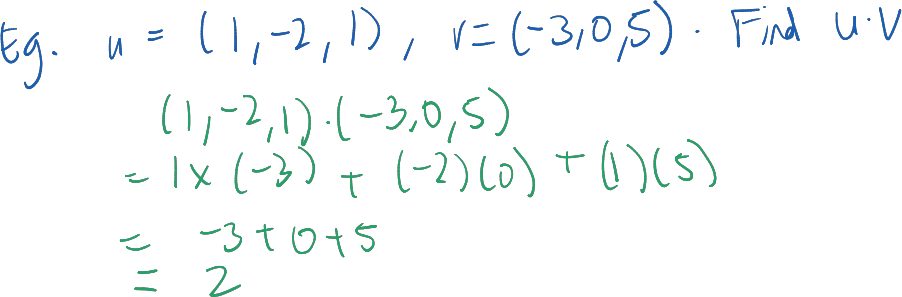 Eg. u = (1,-2,1), v=(-3,0,5). Find u·v
(1,-2,1)·(-3,0,5)
= 1x (-3) + (-2)(0) + (1)(5)
= -3+0+5
= 2